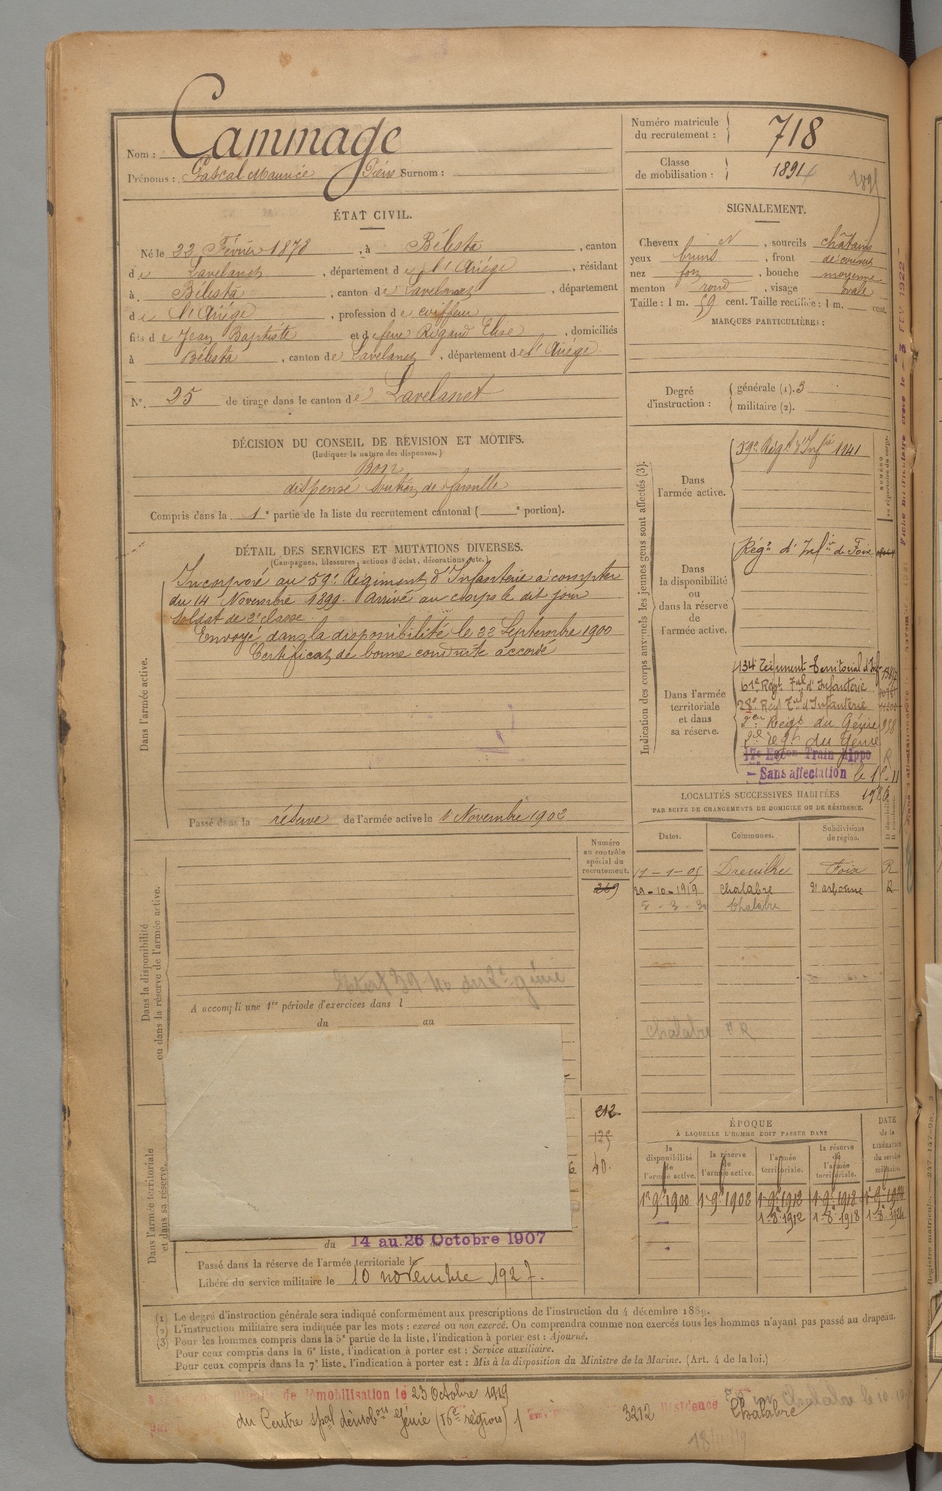 Nom : Cammage
Prénoms : Pascal Maurice Surnom :
Numéro matricule du recrutement : 718
Classe de mobilisation : 1894
ÉTAT CIVIL.
Né le 22 Février 1878, à Bélesta, canton
de Lavelanet, département de l'Ariège, résidant
à Bélesta, canton de Lavelanet, département
de l'Ariège, profession de coiffeur
fils de Jean Baptiste et de feue Rigaud Elise, domiciliés
à Bélesta, canton de Lavelanet, département de l'Ariège
N° 25 de tirage dans le canton de Lavelanet
SIGNALEMENT.
Cheveux N, sourcils châtains
yeux bruns, front découvert
nez fort, bouche moyenne
menton rond, visage ovale
Taille : 1 m. 59 cent. Taille rectifiée : 1 m. cent.
MARQUES PARTICULIÈRES :
Degré d'instruction : générale (1). 3
militaire (2).
DÉCISION DU CONSEIL DE RÉVISION ET MOTIFS.
(Indiquer la nature des dispenses.)
Bon
dispensé soutien de famille
Compris dans la 1e partie de la liste du recrutement cantonal ( e portion).
DÉTAIL DES SERVICES ET MUTATIONS DIVERSES.
(Campagnes, blessures, actions d'éclat, décorations, etc.)
Dans l'armée active.
Incorporé au 59e Régiment d'Infanterie à compter
du 14 Novembre 1899. Arrivé au corps le dit jour
soldat de 2e classe
Envoyé dans la disponibilité le 22 Septembre 1900
Certificat de bonne conduite accordé
Passé dans la réserve de l'armée active le 1 Novembre 1902
Indication des corps auxquels les jeunes gens sont affectés (3).
Dans l'armée active.
59e Régt d'Infie 1141
Dans la disponibilité ou dans la réserve de l'armée active.
Régt d'Infie de Foix
Dans l'armée territoriale et dans sa réserve.
134 Régiment Territorial d'Inf
61e Régt Tal d'Infanterie
28e Régt Tal d'Infanterie
2e Régt du Génie
2e Rgt du Génie
17e Egon Train hippo
- Sans affectation le 1er 11
LOCALITÉS SUCCESSIVES HABITÉES
PAR SUITE DE CHANGEMENTS DE DOMICILE OU DE RÉSIDENCE.
Dates. Communes. Subdivisions de région.
11-1-05 Dreuilhe Foix R
29-10-1919 Chalabre Narbonne R
5-3-30 Chalabre
Chalabre
Numéro au contrôle spécial du recrutement.
269
Dans la disponibilité ou dans la réserve de l'armée active.
A accompli une 1re période d'exercices dans l
du au
Dans l'armée territoriale et dans sa réserve.
212
125
40.
du 14 au 26 Octobre 1907
Passé dans la réserve de l'armée territoriale le
Libéré du service militaire le 10 novembre 1927.
ÉPOQUE
À LAQUELLE L'HOMME DOIT PASSER DANS
la disponibilité de l'armée active. la réserve de l'armée active. l'armée territoriale. la réserve de l'armée territoriale. DATE de la LIBÉRATION du service militaire.
1er 9bre 1900 1er 9bre 1902 1er 9bre 1912 1er 9bre 1918
1-8bre 1912 1-8bre 1918
(1) Le degré d'instruction générale sera indiqué conformément aux prescriptions de l'instruction du 4 décembre 1889.
(2) L'instruction militaire sera indiquée par les mots : exercé ou non exercé. On comprendra comme non exercés tous les hommes n'ayant pas passé au drapeau.
(3) Pour les hommes compris dans la 5e partie de la liste, l'indication à porter est : Ajourné.
Pour ceux compris dans la 6e liste, l'indication à porter est : Service auxiliaire.
Pour ceux compris dans la 7e liste, l'indication à porter est : Mis à la disposition du Ministre de la Marine. (Art. 4 de la loi.)
démobilisation le 23 Octobre 1919
du Centre spal démobon Génie (16e région) 3212 Résidence Chalabre